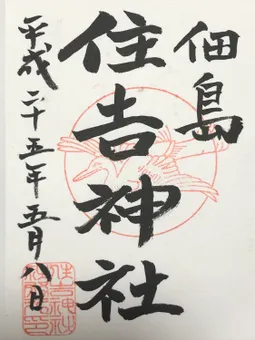 佃島
住吉神社
平成二十五年五月八日